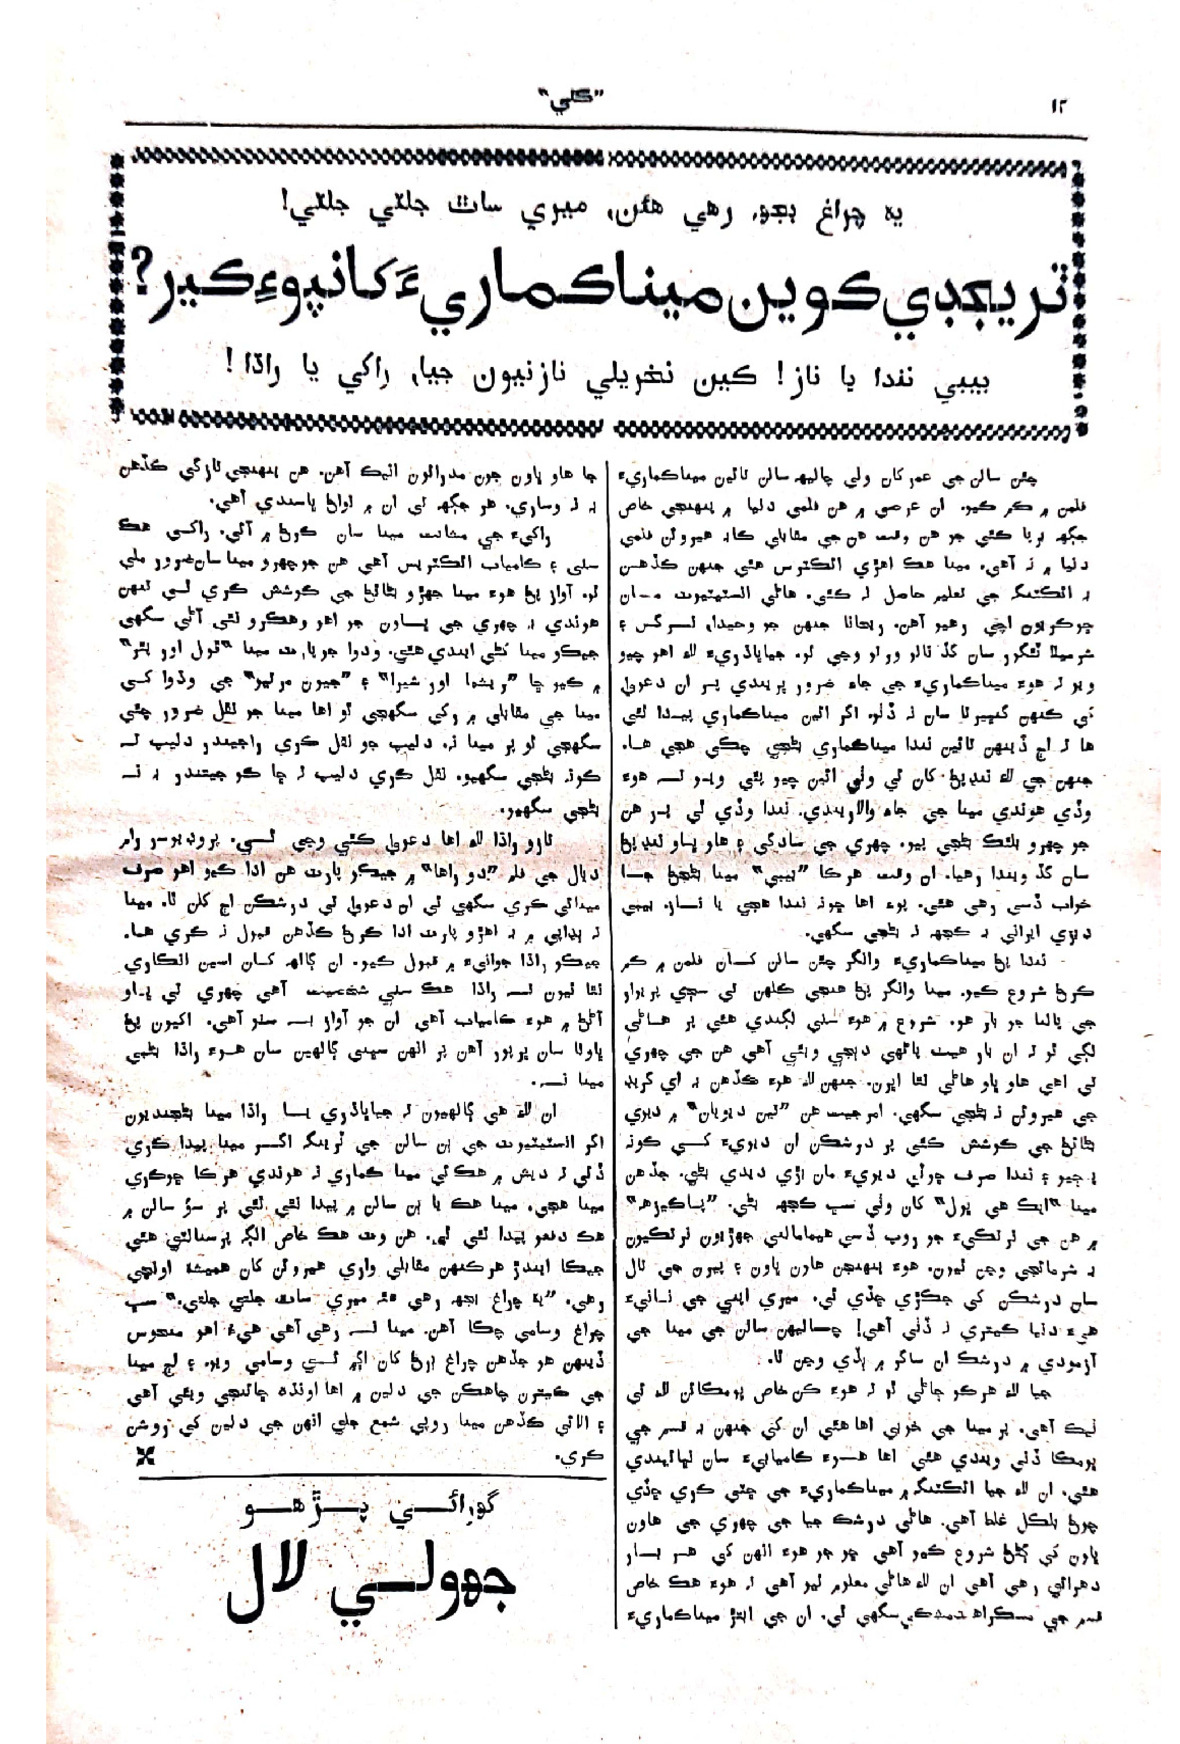 ۱۲
"ڪلي"
يه چراغ بجھ رهي هئن، ميري ساٿ جلتي جلتي!
تريجڊي ڪوين ميناڪماريءَ کانپوءِ ڪير؟
بيبي نندا يا ناز! ڪين نخريلي نازنيون جيا، راکي يا راڌا!
ڇئن سالن جي عمر کان ولي چاليهه سالن تائين ميناڪماريءَ
فلمن ۾ ڪم ڪيو. ان عرصي ۾ هن فلمي دنيا ۾ پنهنجي خاص
جڳهه برپا ڪئي جو هن وقت هن جي مقابلي ڪابه هيروئن فلمي
دنيا ۾ نه آهي. مينا هڪ اهڙي ائڪٽرس هئي جنهن ڪڏهن
به ائڪٽنگ جي تعليم حاصل نه ڪئي. هاڻي انسٽيٽيوٽ مان
ڇوڪريون اچي رهيو آهن. ريحانا جنهن جو وحيدا، نرگس ۽
شرميلا ٽئگور سان گڏ نالو ورتو وڃي ٿو. جياڀاڌريءَ لاءِ اهو چيو
ويو ته هوءَ ميناڪماريءَ جي جاءِ ضرور ڀريندي پر ان دعويٰ
کي ڪنهن گنڀيرتا سان نه ڏٺو. اگر ائين ميناڪماري پيدا ٿئي
ها ته اڄ ڏينهن تائين نندا ميناڪماري بڻجي چڪي هجي ها.
جنهن جي لاءِ ننڍپڻ کان ئي وٺي ائين چيو پئي ويو ته هوءَ
وڏي هوندي مينا جي جاءِ والاريندي. نندا وڏي ٿي پر هن
جو چهرو بلنڪ بڻجي پيو. چهري جي سادگي ۽ هاو ڀاو ننڍپڻ
سان گڏ ويندا رهيا. ان وقت هرڪا "بيبي" مينا بڻجڻ جا
خواب ڏسي رهي هئي. پوءِ اها ڇونه نندا هجي يا ناز، بيبي
ڊيزي ايراني به ڪجهه نه بڻجي سگهي.
نندا پڻ ميناڪماريءَ وانگر ڇئن سالن کان فلمن ۾ ڪم
ڪرڻ شروع ڪيو. مينا وانگر پڻ هنجي ڪلهن تي سڄي پريوار
جي پالنا جو بار هو. شروع ۾ هوءَ سٺي لڳندي هئي پر هاڻي
لڳي ٿو ته ان بار هيٺ پاڻهي دٻجي ويئي آهي هن جي چهري
تي اهي هاو ڀاو هاڻي نٿا اچن. جنهن لاءِ هوءَ ڪڏهن به اي گريڊ
جي هيروئن نه بڻجي سگهي. امرجيت هن "تين ديويان" ۾ ديوي
بڻائڻ جي ڪوشش ڪئي پر درشڪن ان ديويءَ کي ڪونه
پوڄيو ۽ نندا صرف ڇوٽي ديويءَ مان اڙي ديدي بڻي. جڏهن
مينا "ايڪ هي ڀول" کان وٺي سڀ ڪجهه بڻي. "پاڪيزهه"
۾ هن جي نرتڪيءَ جو روپ ڏسي هيمامالني جهڙيون نرتڪيون
به شرمائجي وڃن ٿيون. هوءَ پنهنجن هاون ڀاون ۽ پيرن جي تال
سان درشڪن کي جڪڙي ڇڏي ٿي. ميري اپني جي نانيءَ
هيءَ دنيا ڪيتري نه ڏٺي آهي! چاليهن سالن جي مينا جي
آزمودي ۾ درشڪ ان ساگر ۾ ٻڏي وڃن ٿا.
جيا لاءِ هرڪو ڄاڻي ٿو ته هوءَ ڪن خاص ڀومڪائن لاءِ ئي
ٺيڪ آهي. پر مينا جي خوبي اها هئي ان کي جنهن به قسم جي
ڀومڪا ڏني ويندي هئي اها هوءَ ڪاميابيءَ سان نڀائيندي
هئي. ان لاءِ جيا ائڪٽنگ ۾ ميناڪماريءَ جي ڇٽي ڪري ڇڏي
چوڻ بلڪل غلط آهي. هاڻي درشڪ جيا جي چهري جي هاون
ڀاون کي ڳڻڻ شروع ڪيو آهي ڇو جو هوءَ انهن کي هر بار
دهرائي رهي آهي ان لاءِ هاڻي معلوم ٿيو آهي ته هوءَ هڪ خاص
قسم جي مسڪراهٽ سگهي ٿي. ان جي ابتڙ ميناڪماريءَ
جا هاو ڀاون جون مدرائون انيڪ آهن. هن پنهنجي تازگي ڪڏهن
به نه وساري. هر جڳهه تي ان ۾ نواڻ ڀاسندي آهي.
راکيءَ جي مشابهت مينا سان ڪرڻ ۾ آئي. راکي هڪ
سٺي ۽ ڪامياب ائڪٽريس آهي هن جو چهرو مينا سان ضرور ملي
ٿو. آواز پڻ هوءَ مينا جهڙو بڻائڻ جي ڪوشش ڪري ٿي تنهن
هوندي به چهري جي ڀاون جو اهو وهڪرو نٿي آڻي سگهي
جيڪو مينا کڻي ايندي هئي. وڌوا جو پارٽ مينا "ڦول اور پٿر"
۾ ڪيو ڇا "ريشما اور شيرا" ۽ "جيون مرتيو" جي وڌوا کي
مينا جي مقابلي ۾ رکي سگهجي ٿو اها مينا جو نقل ضرور چئي
سگهجي ٿو پر مينا نه. دليپ جو نقل ڪري راجيندر دليپ ته
ڪونه بڻجي سگهيو. نقل ڪري دليپ ته ڇا ڪو جيتندر به نه
بڻجي سگهيو.
تارو راڌا لاءِ اها دعويٰ ڪئي وڃي ٿي. پروڊيوسر رام
ديال جي فلم "دو راها" ۾ جيڪو پارٽ هن ادا ڪيو اهو صرف
مينائي ڪري سگهي ٿي ان دعويٰ تي درشڪن اچ کلن ٿا. مينا
ته ٻڍاپي ۾ به اهڙو پارٽ ادا ڪرڻ ڪڏهن قبول نه ڪري ها.
جيڪو راڌا جوانيءَ ۾ قبول ڪيو. ان ڳالهه کان اسين انڪاري
نٿا ٿيون ته راڌا هڪ سٺي شخصيت آهي چهري تي ڀاو
آڻڻ ۾ هوءَ ڪامياب آهي ان جو آواز به سٺو آهي. اکيون پڻ
ڀاونا سان ڀرپور آهن پر انهن سڀني ڳالهين سان هوءَ راڌا بڻجي
مينا نه.
ان لاءِ هي ڳالهيون ته جياڀاڌري يا راڌا مينا بڻجنديون
اگر انسٽيٽيوٽ جي ٻن سالن جي ٽريننگ اڪسر مينا پيدا ڪري
ڏئي ته ديش ۾ هڪ ئي مينا ڪماري نه هوندي هرڪا ڇوڪري
مينا هجي. مينا هڪ يا ٻن سالن ۾ پيدا نٿي ٿئي پر سؤ سالن ۾
هڪ دفعو پيدا ٿئي ٿي. هن وٽ هڪ خاص الڳ پرسنالٽي هئي
جيڪا ايندڙ هر ڪنهن مقابلي واري هيروئن کان هميشه اوچي
رهي. "يه چراغ بجھ رهي هئه ميري ساٿ جلتي جلتي." سڀ
چراغ وسامي چڪا آهن. مينا نه رهي آهي هيءَ اهو منحوس
ڏينهن هو جڏهن چراغ ٻرڻ کان اڳ ئي وسامي ويو. ۽ اڄ مينا
جي ڪيترن چاهڪن جي دلين ۾ اها اونداهه ڇائنجي ويئي آهي
۽ الائي ڪڏهن مينا روپي شمع جلي انهن جي دلين کي روشن
ڪري.
گهرائي پڙهو
جهولي لال